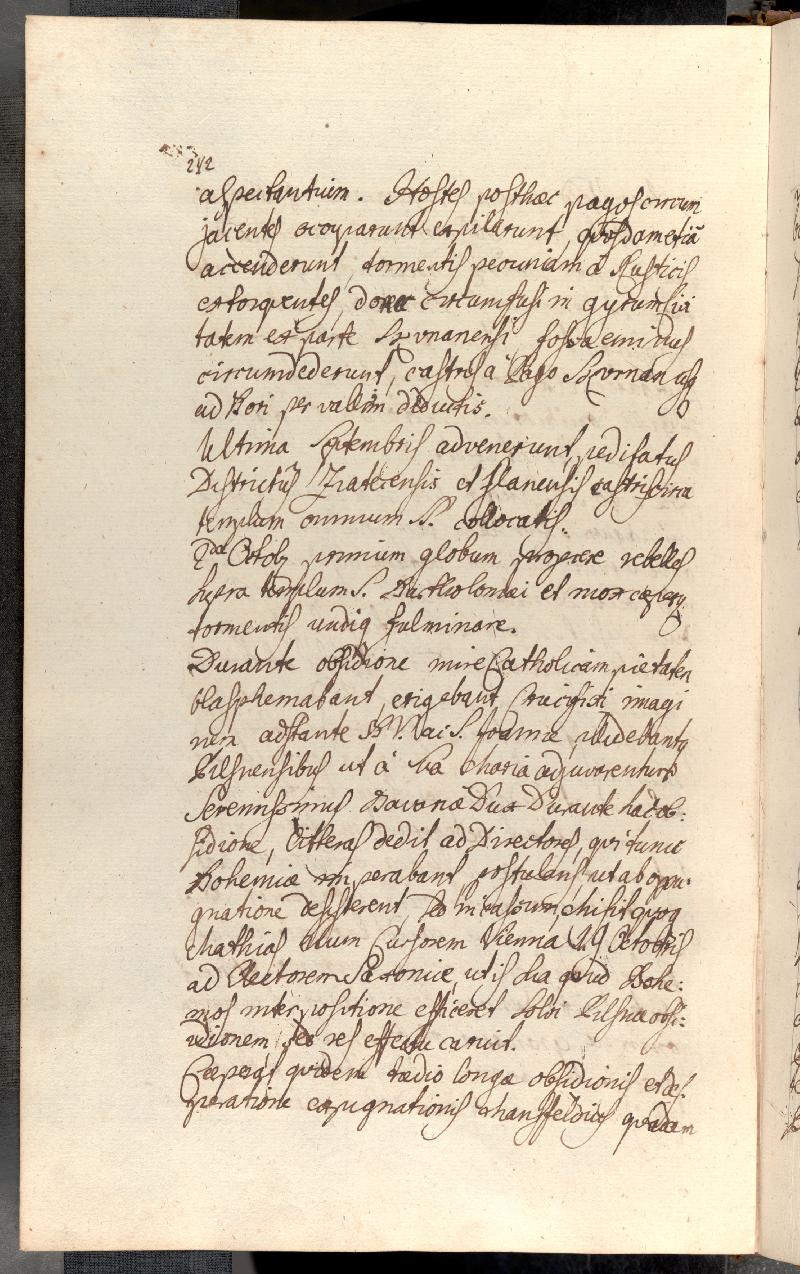 242
aspectantium. Hostes posthac pagos circum
jacentes occuparunt expilarunt, quosdam etiã
accenderunt, tormentis pecuniam â Rusticis
extorquentes, donec circumfusi in gyrum Civi
tatem ex parte Skvrnanensi fossa eminus
circumdederunt, castris â Pago Skvrnan usq
ad Bori per vallem deductis.
Ultima Septembris advenerunt peditatus
Districtus Zatecensis et Slanensis castris circa
templum omnium SS. collocatis.
2da Octob. primum globum projecere rebelles
supra templum S. Bartholomæi et mox cæperũ
tormentis undiq fulminare.
Durante obsidione mire Catholicam pietatem
blasphemabant, erigebant Crucifixi imagi
nem adstante B. V. ac S. Joanne, illudebantq
Pilsnensibus ut â Sa Maria adjuvarentur
Serenissimus Bavariæ Dux Durante hac ob:
sidione, Litteras dedit ad Directores, qui tunc
Bohemiæ imperabant postulans, ut ab oppu:
gnatione desisterent, sed in cassum, misit quoq
Mathias suum Cursorem Vienna 19 Octobris
ad Electorem Saxoniæ, ut is sua apud Bohe:
mos interpositione efficeret solvi Pilsnæ obsi:
dionem, sed res effectu caruit.
Cæperat quidem tædio longæ obsidionis et des:
peratione expugnationis Mansfeldius quadam